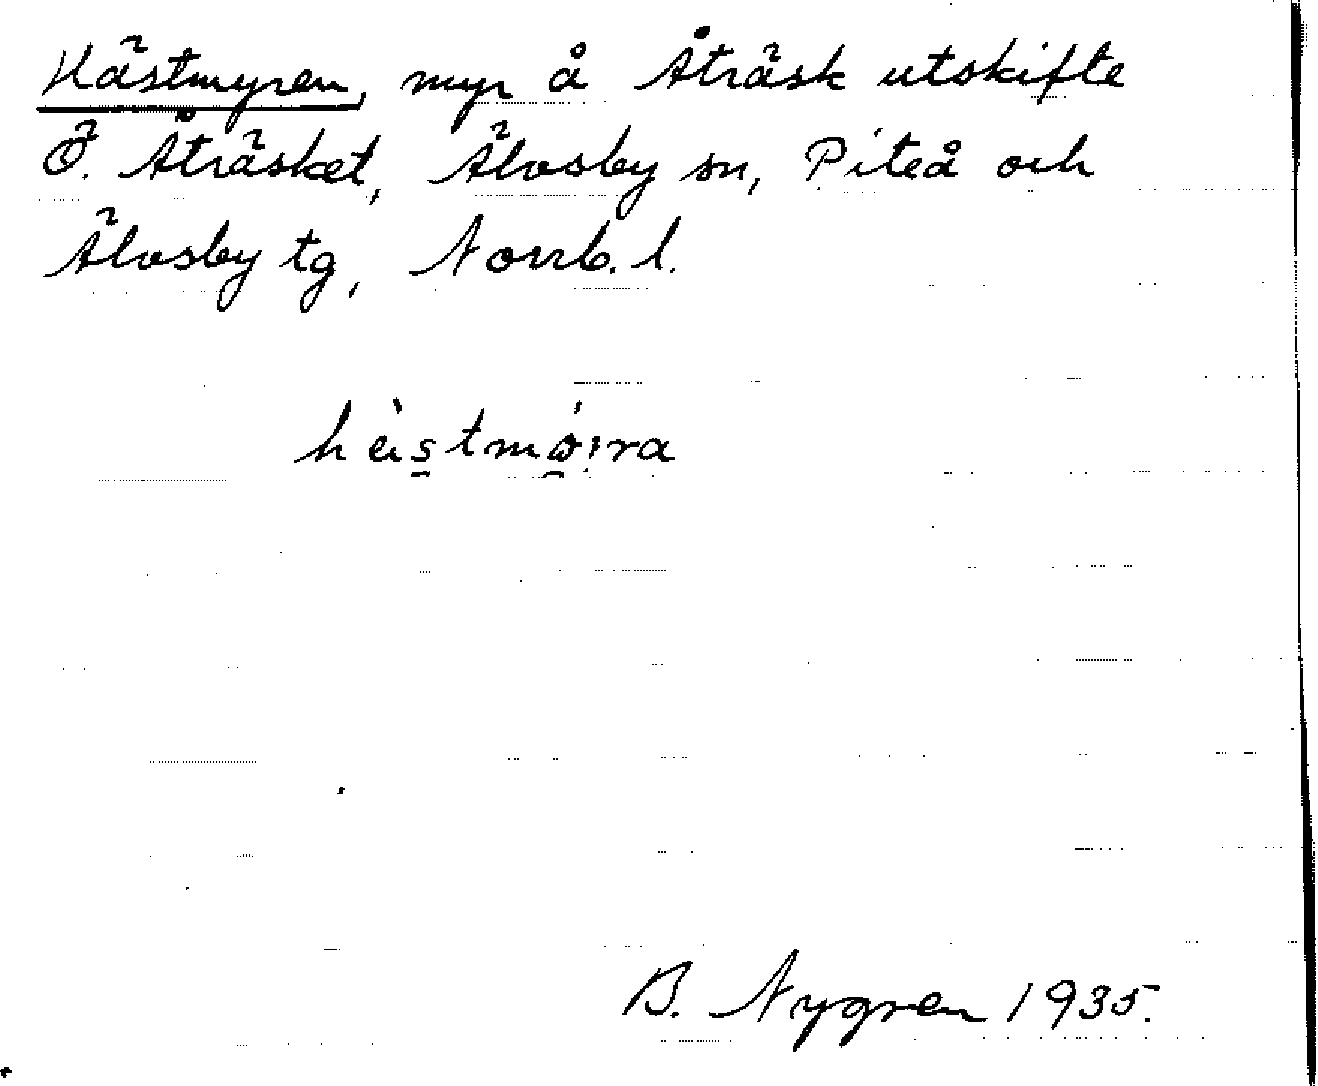 Hästmyren, myr å Åträsk utskifte
Ö. Åträsket, Älvsby sn, Piteå och
Älvsby tg, Norrb. l.
hä̀stmǿ:ra
B. Nygren 1935.